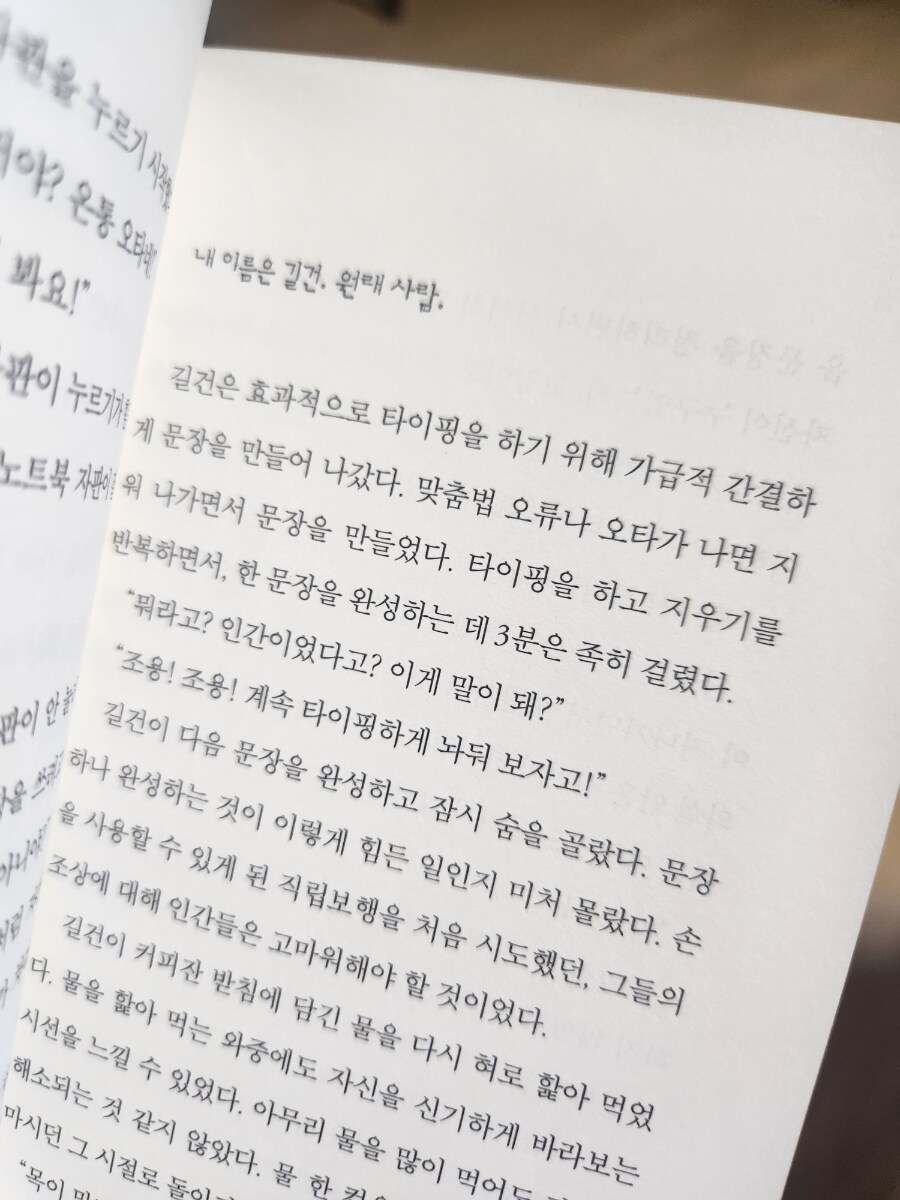 판을 누르기
야? 온통 오타네!"
봐요!"
판이 누르기가
노트북 자판이
판이 안
내 이름은 길건. 원래 사람.
길건은 효과적으로 타이핑을 하기 위해 가급적 간결하
게 문장을 만들어 나갔다. 맞춤법 오류나 오타가 나면 지
워 나가면서 문장을 만들었다. 타이핑을 하고 지우기를
반복하면서, 한 문장을 완성하는 데 3분은 족히 걸렸다.
"뭐라고? 인간이었다고? 이게 말이 돼?"
"조용! 조용! 계속 타이핑하게 놔둬 보자고!"
길건이 다음 문장을 완성하고 잠시 숨을 골랐다. 문장
하나 완성하는 것이 이렇게 힘든 일인지 미처 몰랐다. 손
을 사용할 수 있게 된 직립보행을 처음 시도했던, 그들의
조상에 대해 인간들은 고마워해야 할 것이었다.
길건이 커피잔 받침에 담긴 물을 다시 혀로 핥아 먹었
다. 물을 핥아 먹는 와중에도 자신을 신기하게 바라보는
시선을 느낄 수 있었다. 아무리 물을 많이 먹어도
해소되는 것 같지 않았다. 물 한
마시던 그 시절로
"목이